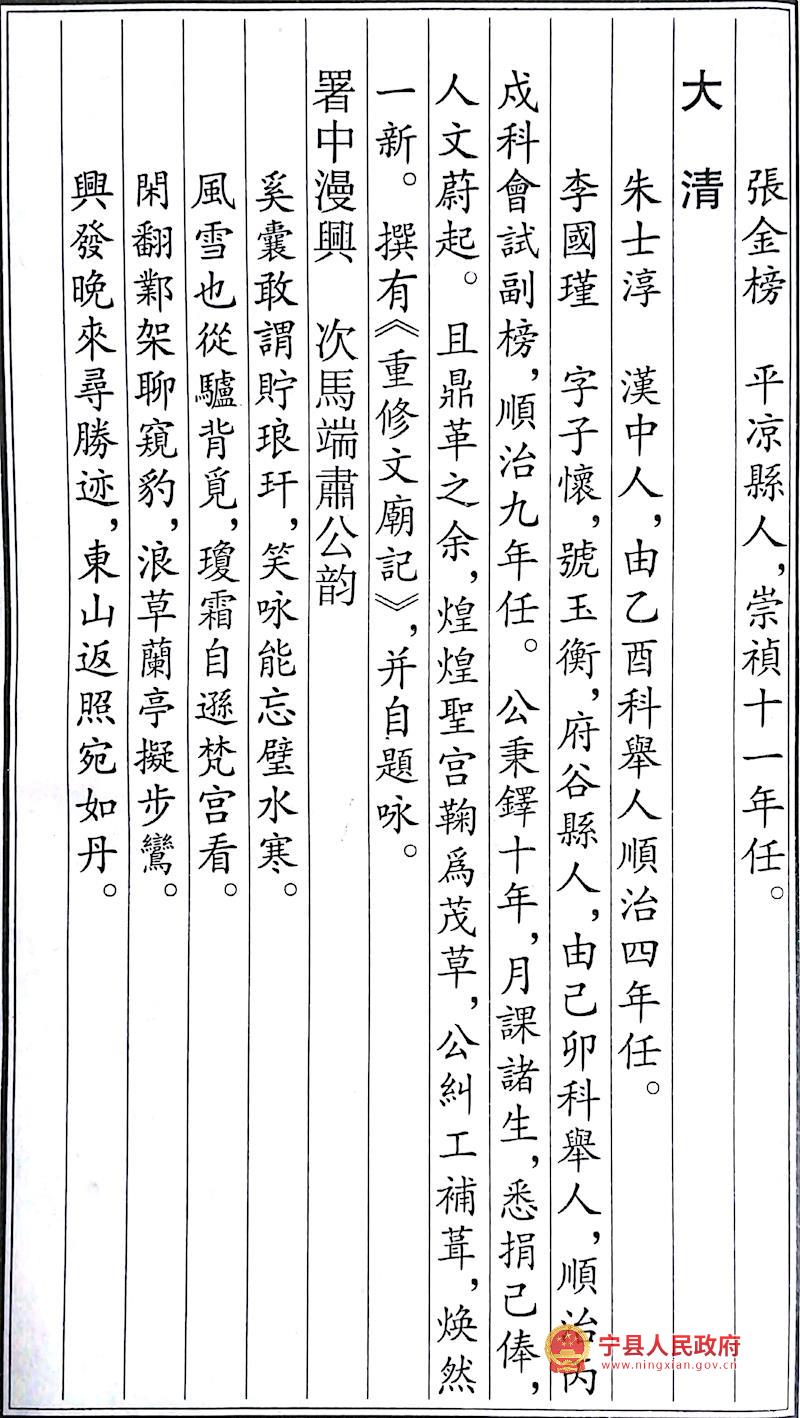 張金榜　平凉縣人，崇禎十一年任。
大　清
朱士淳　漢中人，由乙酉科舉人順治四年任。
李國瑾　字子懷，號玉衡，府谷縣人，由己卯科舉人，順治丙
戍科會試副榜，順治九年任。公秉鐸十年，月課諸生，悉捐己俸，
人文蔚起。且鼎革之余，煌煌聖宫鞠爲茂草，公糾工補葺，焕然
一新。撰有《重修文廟記》，并自題咏。
署中漫興　次馬端肅公韵
奚囊敢謂貯琅玕，笑咏能忘璧水寒。
風雪也從驢背覓，瓊霜自遜梵宫看。
閑翻鄴架聊窺豹，浪草蘭亭擬步鸞。
興發晚來尋勝迹，東山返照宛如丹。
宁县人民政府
www.ningxian.gov.cn